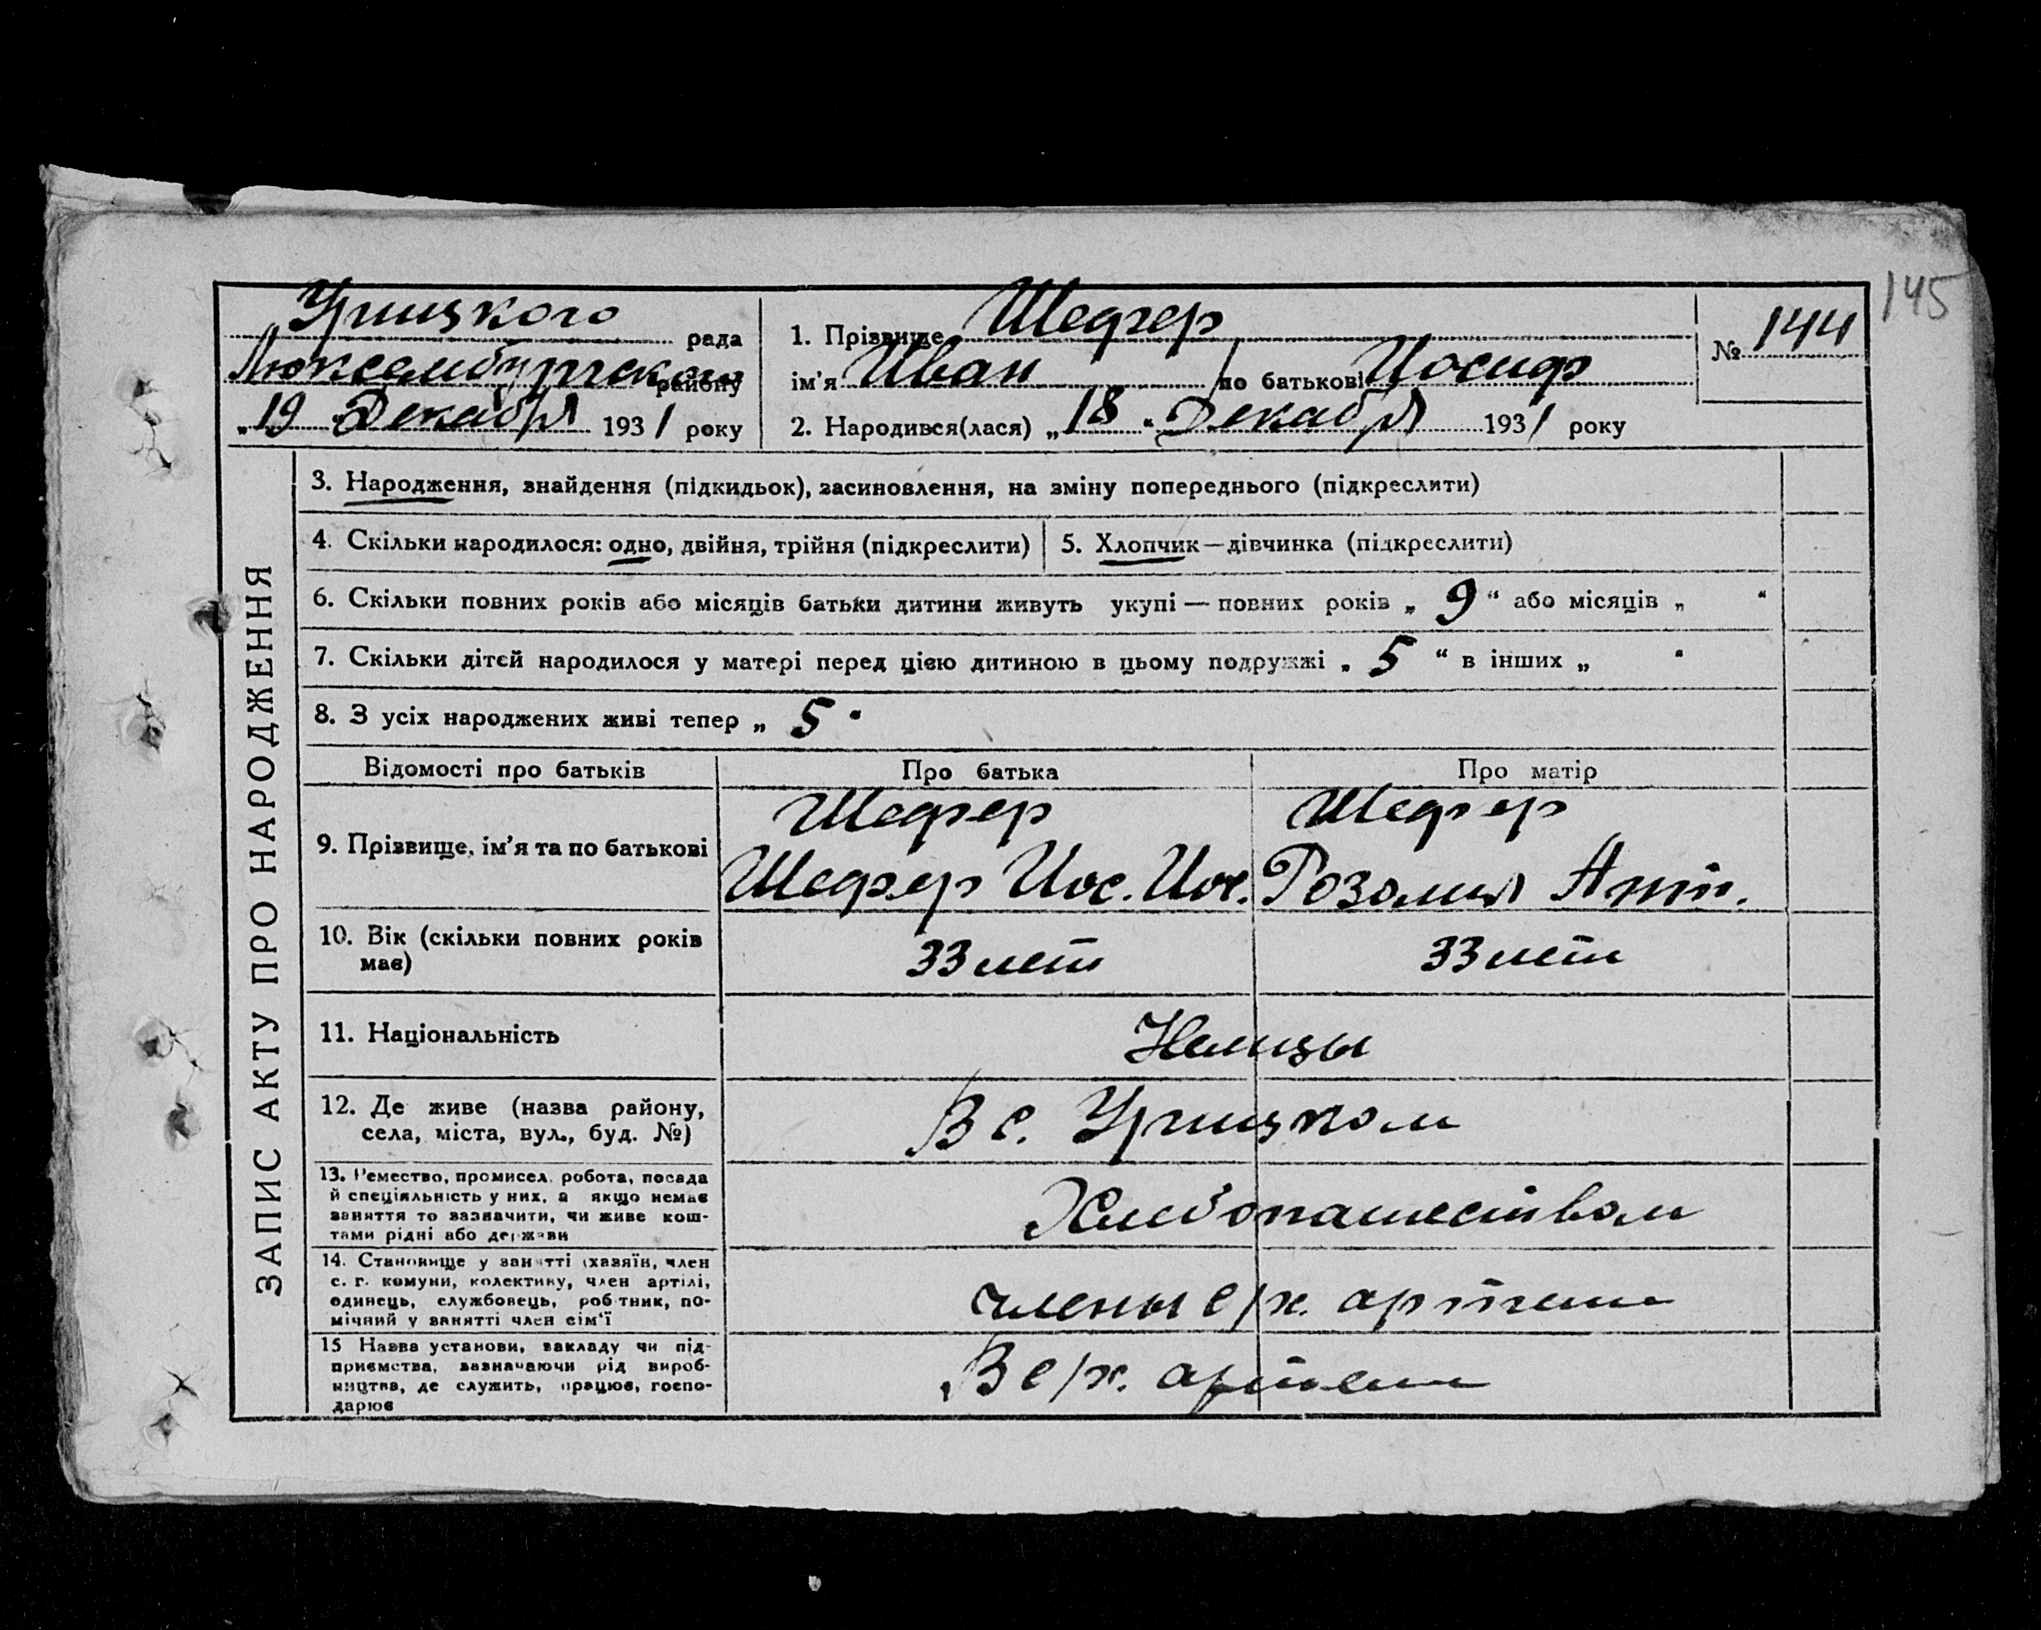 145
Урицкого рада
Люксембургского району
„19 Декабря 1931 року
1. Прізвище Шефер
ім'я Иван по батькові Иосиф
№ 144
2. Народився(лася) „18 “ Декабря 1931 року
ЗАПИС АКТУ ПРО НАРОДЖЕННЯ
3. Народження, знайдення (підкидьок), засиновлення, на зміну попереднього (підкреслити)
4. Скільки народилося: одно, двійня, трійня (підкреслити)
5. Хлопчик—дівчинка (підкреслити)
6. Скільки повних років або місяців батьки дитини живуть укупі — повних років „ 9 “ або місяців „ “
7. Скільки дітей народилося у матері перед цією дитиною в цьому подружжі „ 5 “ в інших „ “
8. З усіх народжених живі тепер „ 5 “
Відомості про батьків
Про батька
Про матір
9. Прізвище, ім'я та по батькові
Шефер
Шефер Иос. Иос.
Шефер
Розалия Ант.
10. Вік (скільки повних років
має)
33 лет
33 лет
11. Національність
Немцы
12. Де живе (назва району,
села, міста, вул., буд. №)
В с. Урицком
13. Ремество, промисел, робота, посада
й спеціяльність у них, а якщо немає
заняття то зазначити, чи живе кош-
тами рідні або держави
Хлебопашеством
14. Становище у занятті (хазяїн, член
с. г. комуни, колективу, член артілі,
одинець, службовець, робітник, по-
мічний у занятті член сім'ї
члены с/х. артели
15 Назва установи, закладу чи під-
приємства, зазначаючи рід вироб-
ництва, де служить, працює, госпо-
дарює
В с/х. артели